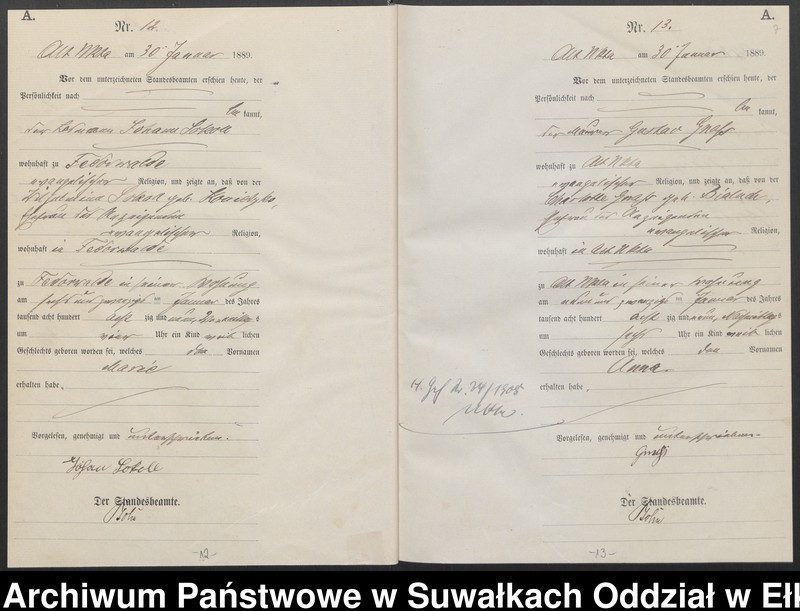 A.
Nr. 12.
Alt Ukta am 30 Januar 1889.
Vor dem unterzeichneten Standesbeamten erschien heute, der
Persönlichkeit nach
kannt,
der Johann
wohnhaft zu Fedorwalde
evangelischer Religion, und zeigte an, daß von der
Wilhelmine geb.
Ehefrau des Anzeigenden
evangelischer Religion,
wohnhaft in Fedorwalde
zu Fedorwalde in seiner Wohnung
am sechs und zwanzigsten Januar des Jahres
tausend acht hundert acht zig und neun
um vier Uhr ein Kind weib lichen
Geschlechts geboren worden sei, welches den Vornamen
Marie
erhalten habe.
Vorgelesen, genehmigt und unterschrieben.
Der Standesbeamte.
-12-
A.
Nr. 13.
Alt Ukta am 30 Januar 1889.
Vor dem unterzeichneten Standesbeamten erschien heute, der
Persönlichkeit nach
kannt,
der Maurer Gustav
wohnhaft zu Alt Ukta
evangelischer Religion, und zeigte an, daß von der
Charlotte geb.
Ehefrau des Anzeigenden
evangelischer Religion,
wohnhaft in Alt Ukta
zu Alt Ukta in seiner Wohnung
am neun und zwanzigsten Januar des Jahres
tausend acht hundert acht zig und neun Nachmittags
um sechs Uhr ein Kind weib lichen
Geschlechts geboren worden sei, welches den Vornamen
Anna
erhalten habe.
Vorgelesen, genehmigt und unterschrieben.
Der Standesbeamte.
-13-
Archiwum Państwowe w Suwałkach Oddział w Eł